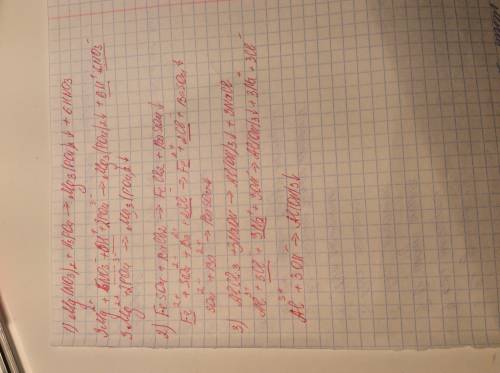 1) Mg(NO3)2 + H3PO4 → Mg3(PO4)2↓ + 6HNO3
3Mg²⁺ + 6NO3⁻ + 6H⁺ + 2PO4³⁻ → Mg3(PO4)2↓ + 6H⁺ + 6NO3⁻
3Mg²⁺ + 2PO4³⁻ → Mg3(PO4)2↓
2) FeSO4 + BaCl2 → FeCl2 + BaSO4↓
Fe²⁺ + SO4²⁻ + Ba²⁺ + 2Cl⁻ → Fe²⁺ + 2Cl⁻ + BaSO4↓
SO4²⁻ + Ba²⁺ → BaSO4↓
3) AlCl3 + 3NaOH → Al(OH)3↓ + 3NaCl
Al³⁺ + 3Cl⁻ + 3Na⁺ + 3OH⁻ → Al(OH)3↓ + 3Na⁺ + 3Cl⁻
Al³⁺ + 3OH⁻ → Al(OH)3↓